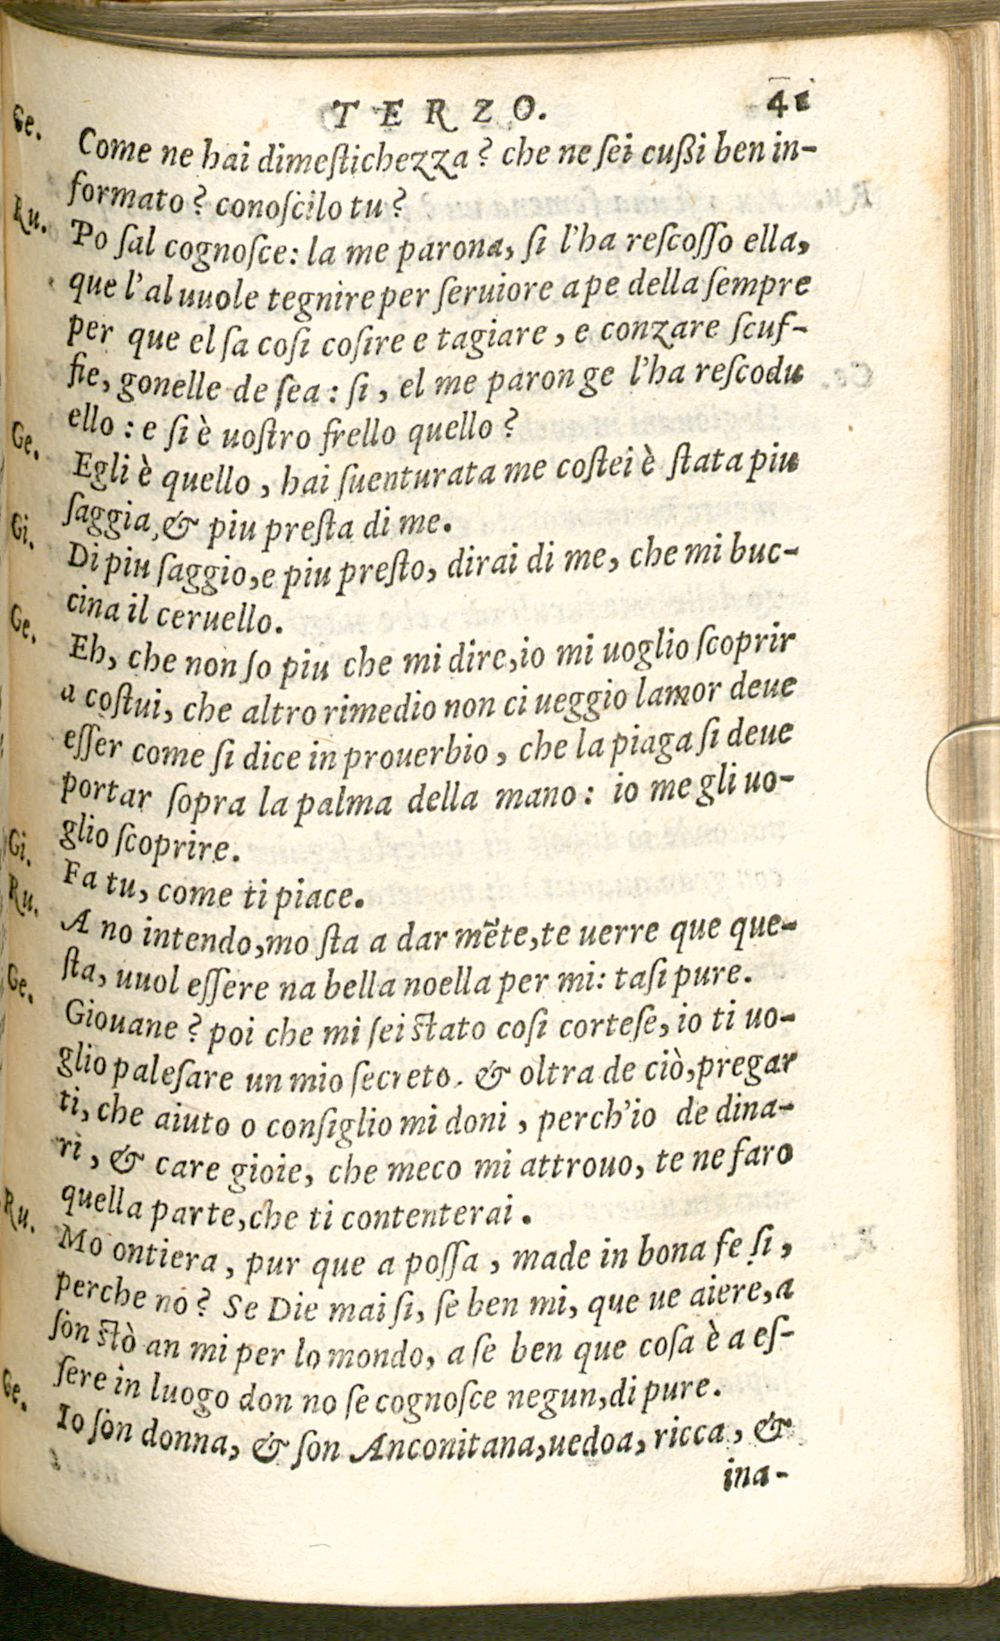 TERZO. 41
Ge. Come ne hai dimeſtichezza? che ne ſei cußi ben in-
formato? conoſcilo tu?
Ru. Po ſal cognoſce: la me parona, ſi l'ha reſcoſſo ella,
que l'al uuole tegnire per ſeruiore a pe della ſempre
per que el ſa coſi coſire e tagiare, e conzare ſcuf-
fie, gonelle de ſea: ſi, el me paron ge l'ha reſcodu
ello: e ſi è uoſtro frello quello?
Ge. Egli è quello, hai ſuenturata me coſtei è ſtata piu
ſaggia, & piu preſta di me.
Gi. Di piu ſaggio, e piu preſto, dirai di me, che mi buc-
cina il ceruello.
Ge. Eh, che non ſo piu che mi dire, io mi uoglio ſcoprir
a coſtui, che altro rimedio non ci ueggio lamor deue
eſſer come ſi dice in prouerbio, che la piaga ſi deue
portar ſopra la palma della mano: io me gli uo-
glio ſcoprire.
Gi. Fa tu, come ti piace.
Ru. A no intendo, mo ſta a dar mẽte, te uerre que que-
ſta, uuol eſſere na bella noella per mi: taſi pure.
Ge. Giouane? poi che mi ſei ſtato coſi corteſe, io ti uo-
glio paleſare un mio ſecreto. & oltra de ciò, pregar
ti, che aiuto o conſiglio mi doni, perch'io de dina-
ri, & care gioie, che meco mi attrouo, te ne faro
quella parte, che ti contenterai.
Ru. Mo ontiera, pur que a poſſa, made in bona fe ſi,
perche no? Se Die mai ſi, ſe ben mi, que ue aiere, a
ſon ſtò an mi per lo mondo, a ſe ben que coſa è a eſ-
ſere in luogo don no ſe cognoſce negun, di pure.
Ge. Io ſon donna, & ſon Anconitana, uedoa, ricca, &
ina-